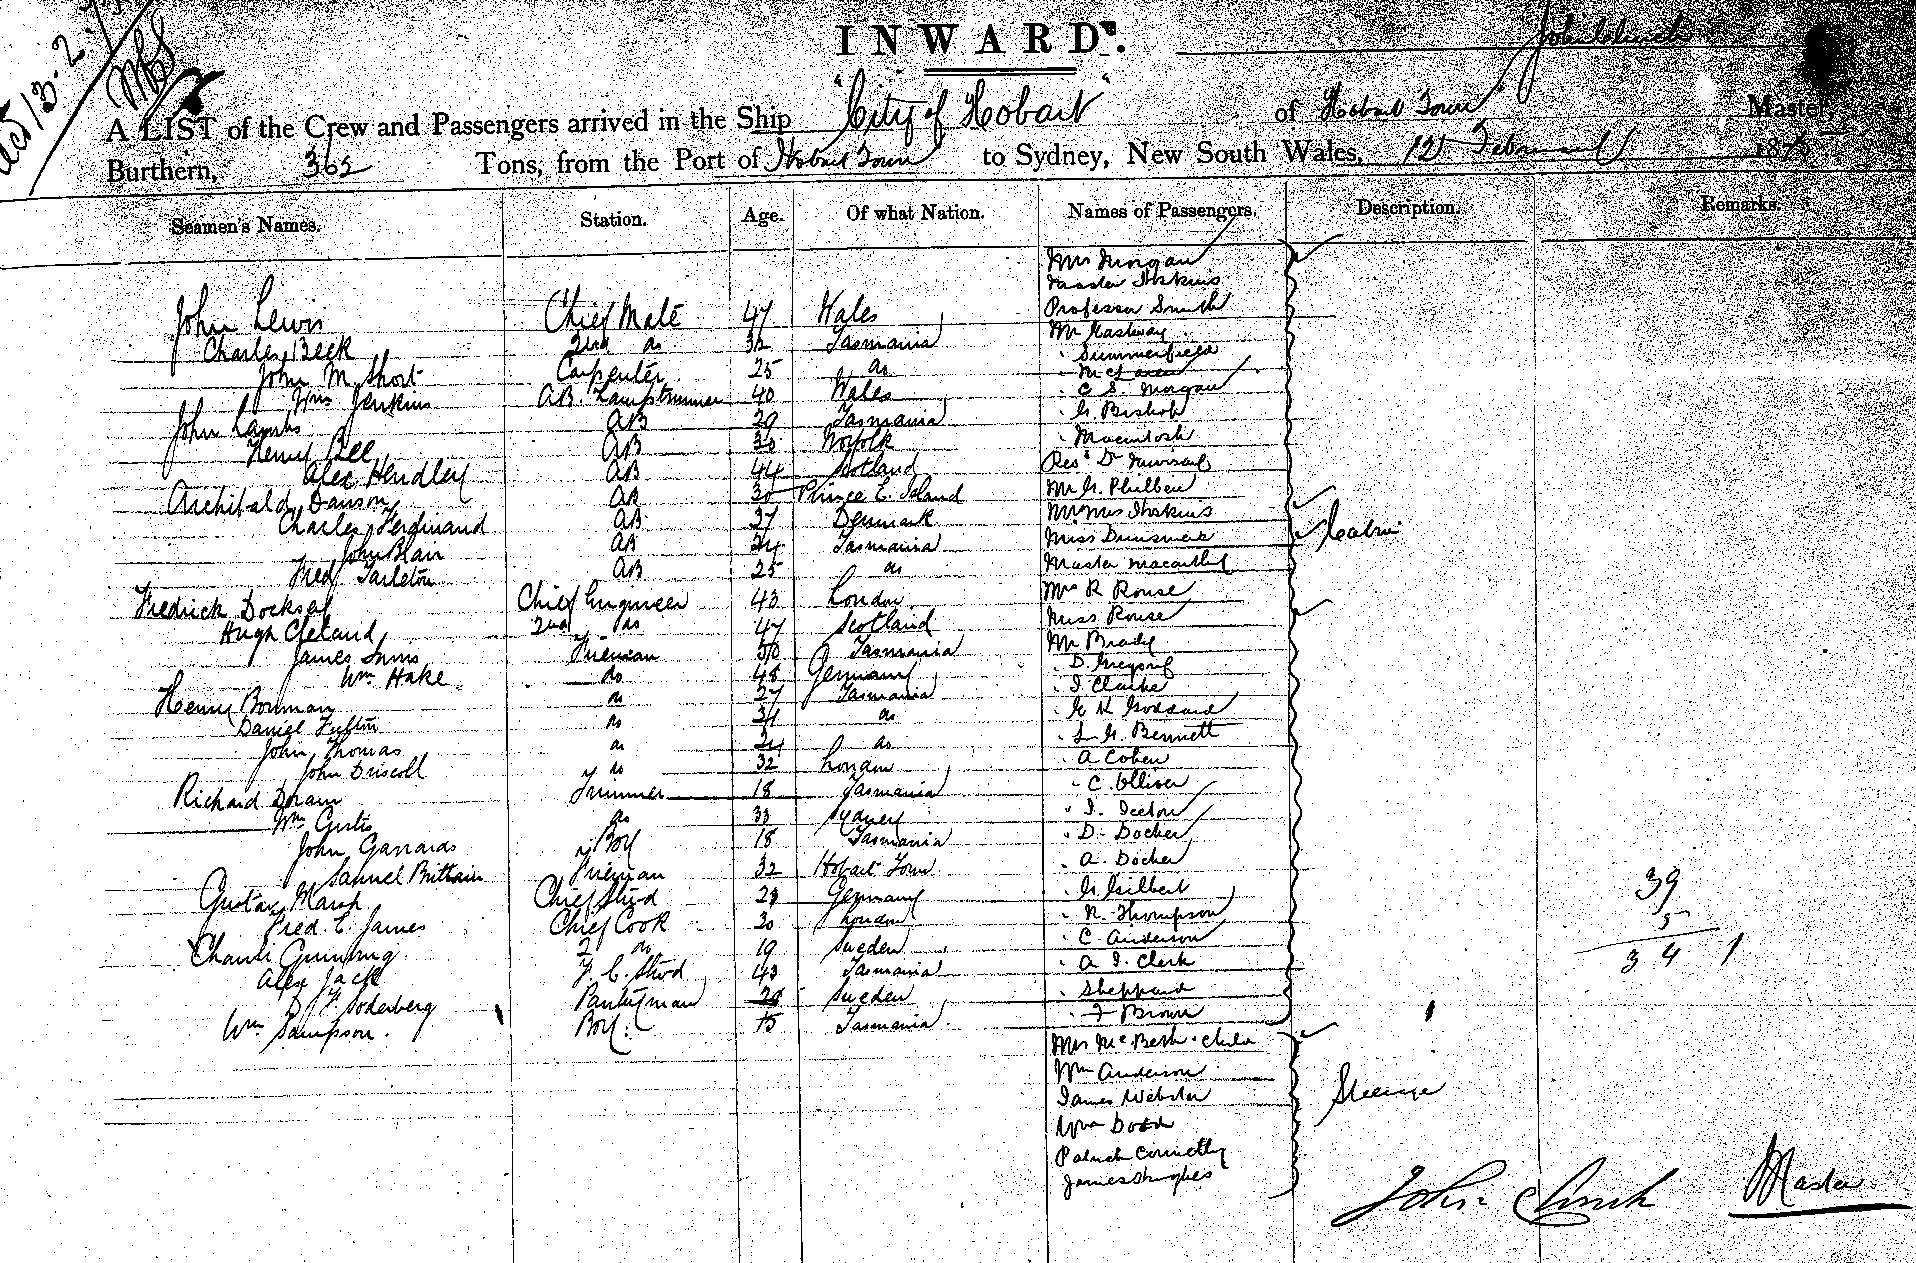 INWARD.
John Clinch
A LIST of the Crew and Passengers arrived in the Ship "City of Hobart" of Hobart Town Master,
Burthern, 365 Tons, from the Port of Hobart Town to Sydney, New South Wales, 12 February 187
Seamen's Names. Station. Age. Of what Nation. Names of Passengers. Description. Remarks.
Mrs Morgan
Master Hoskins
John Lewis Chief Mate 47 Wales Professor Smith
Charles Beck 2nd do 32 Tasmania Mr
John M. Short Carpenter 25 do " Summerfield
Wm Jenkins AB. Lamptrimmer 40 Wales " C S. Morgan
John Lambs AB 29 Tasmania " G. Bishop
Henry Bee AB 30 Norfolk " Macintosh
Alex Hendley AB 44 Scotland Revd Dr
Archibald Dawson AB 30 Prince E. Island Mr G. Philben
Charles Ferdinand AB 27 Denmark Mr Mrs Hoskins
John Blair AB 24 Tasmania Miss Cabin
Fred Tarleton AB 25 do Master Macarthy
Fredrick Docksey Chief Engineer 43 London Mrs R Rouse
Hugh Cleland 2nd do 47 Scotland Miss Rouse
James Inns Fireman 50 Tasmania Mr Brady
Wm Hake do 48 Germany " D. Gregory
Henry Bowman do 27 Tasmania " J. Clarke
Daniel Fulton do 34 do " G K Goddard
John Thomas do 24 do " L. G. Bennett
John Driscoll do 32 London " A Cohen
Richard Doram Trimmer 18 Tasmania " C. Olliver
Wm Curtis do 33 Sydney " J. Iceton
John Garrards " Boy 18 Tasmania " D. Docker
Samuel Brittain Fireman 32 Hobart Town " A. Docker
Gustav Marsh Chief Stwd 28 Germany " G. Gilbert
Fred. E. James Chief Cook 30 London " R. Thompson
Charli Gunning 2 do 19 Sweden " C Anderson
Alex Jack F. C. Stwd 43 Tasmania " A J. Clerk
F. Soderberg Pantryman 28 Sweden " Sheppard
Wm Sampson. Boy. 15 Tasmania " F Brown
39
5
34 1
Mrs McBeth & Child
Wm Anderson
James Webster Steerage
Wm Dodd
Patrick Connelly
James Hughes
John Clinch Master